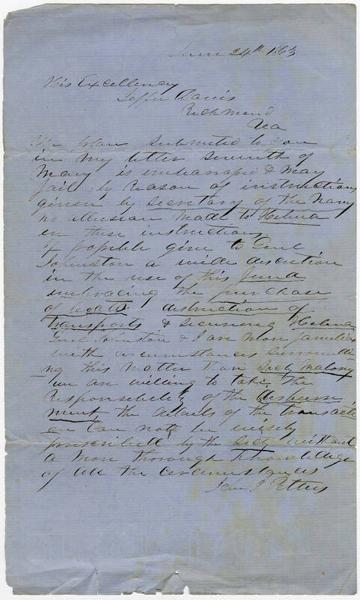 June 24th 1863
His Excellency
Jeffn Davis
Richmond
Va
The plan submitted to you
in my letter seventh of
May is endangered & may
fail by reason of instructions
given by Secretary of the Navy
no allusion made to Helena
in these instructions
If possible give to Genl
Johnston a wide discretion
in the use of this fund
embracing the purchase
of boats, distruction of
transports & securing Helena
Genl Johnston & I are more familiar
with circumstances surroundi
ng this matter than Secy Malory
I am willing to take the
responsibility of the disburse
ment the details of the transacti
on can not be wisely
prescribed by the Secy without
a more thorough knowledge
of all the circumstances
Jno J Pettus